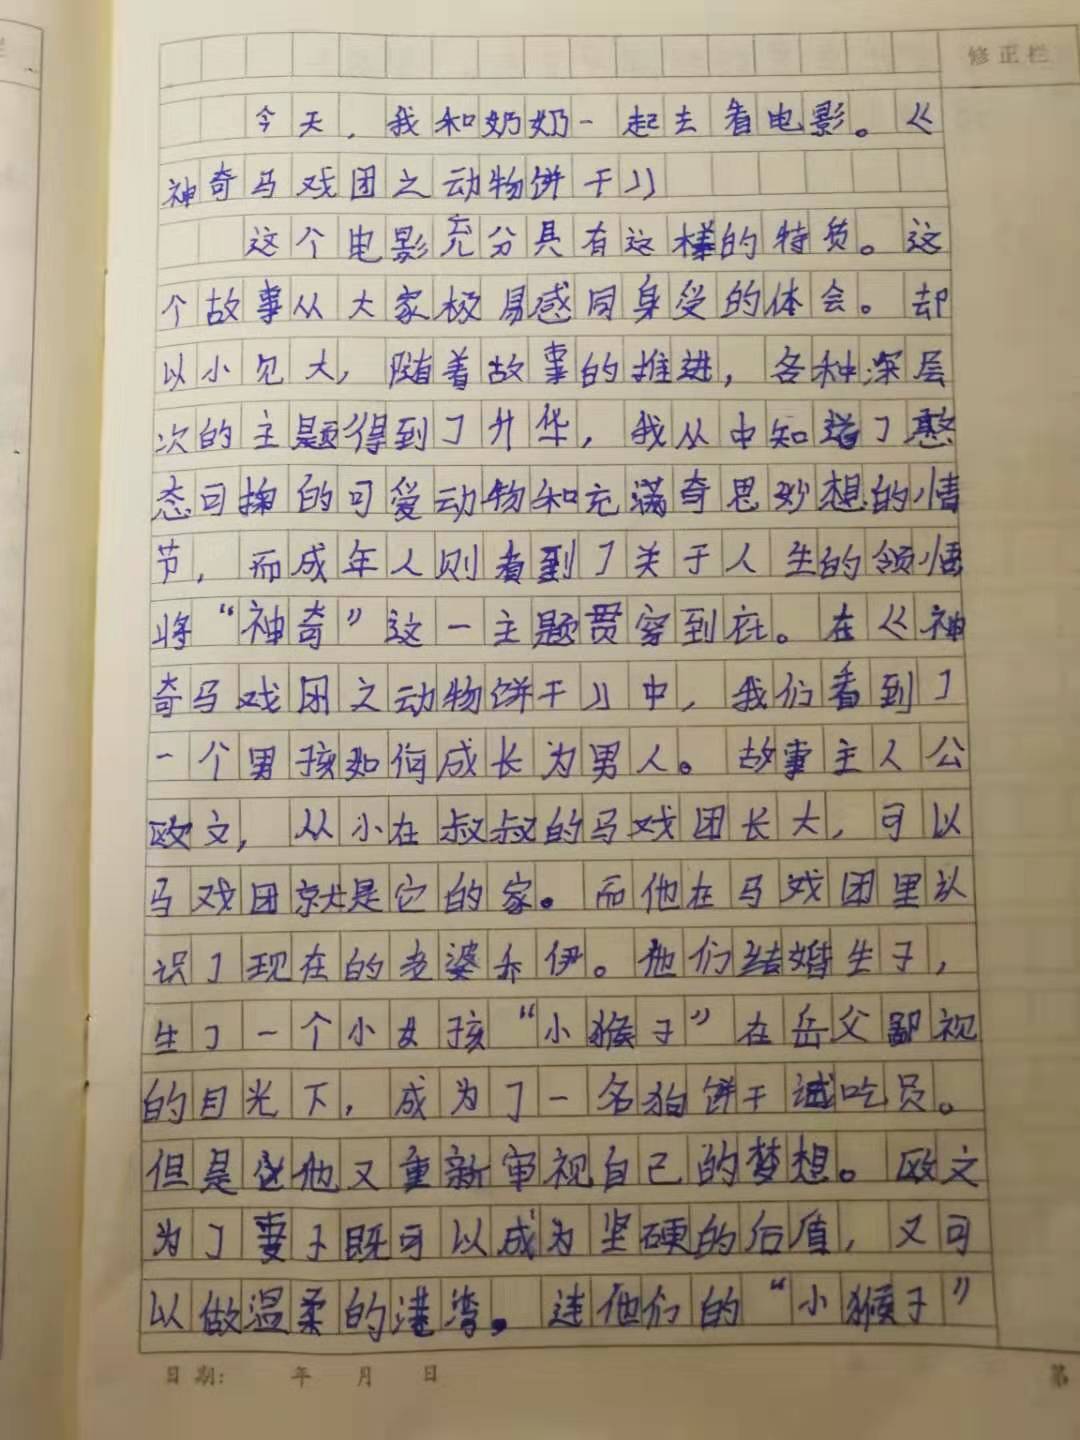 修正栏
今天，我和奶奶一起去看电影。《
神奇马戏团之动物饼干》
这个电影充分具有这样的特质。这
个故事从大家极易感同身受的体会。却
以小见大，随着故事的推进，各种深层
次的主题得到了升华，我从中知道了憨
态可掬的可爱动物和充满奇思妙想的情
节，而成年人则看到了关于人生的领悟
将“神奇”这一主题贯穿到底。在《神
奇马戏团之动物饼干》中，我们看到了
一个男孩如何成长为男人。故事主人公
欧文，从小在叔叔的马戏团长大，可以
马戏团就是它的家。而他在马戏团里认
识了现在的老婆乔伊。他们结婚生子，
生了一个小女孩“小猴子”在岳父鄙视
的目光下，成为了一名狗饼干试吃员。
但是他又重新审视自己的梦想。欧文
为了妻子既可以成为坚硬的后值，又可
以做温柔的港湾。连他们的“小猴子”
日期： 年 月 日
第